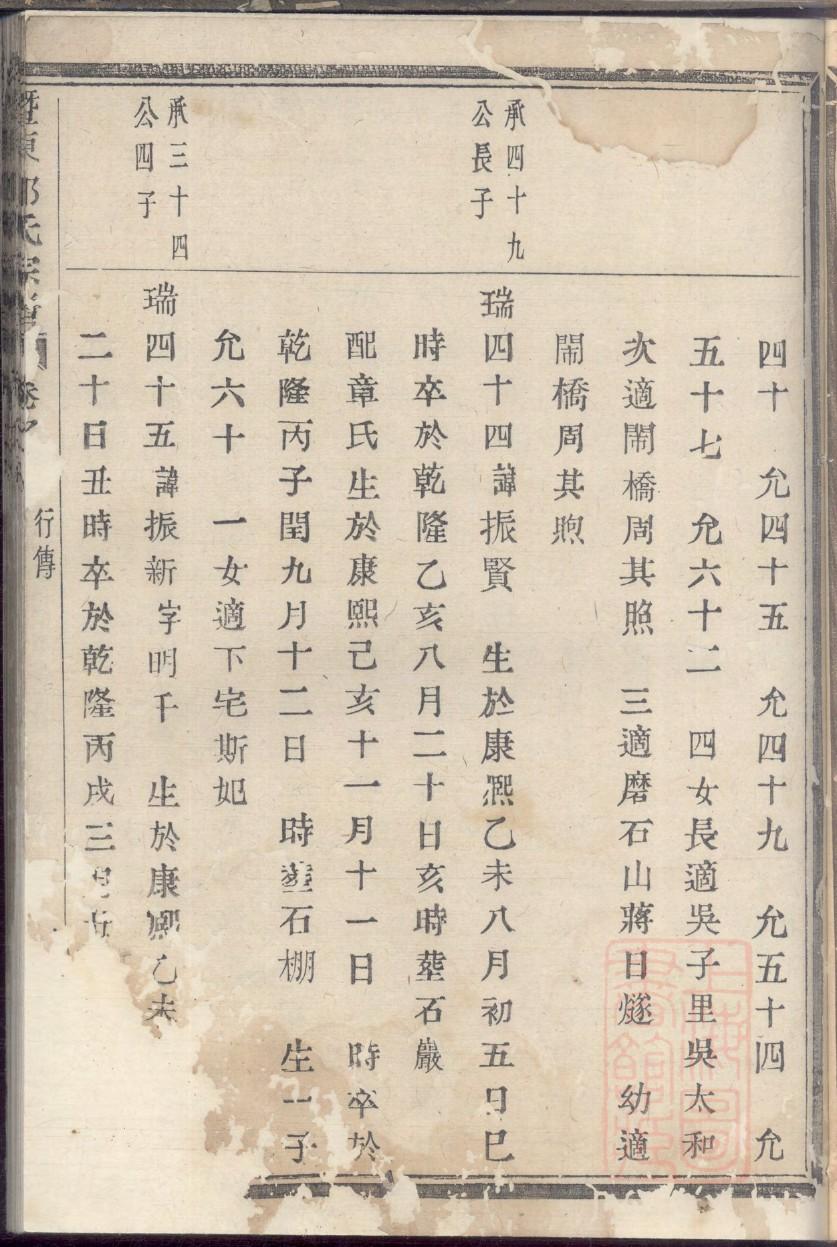 四十　允四十五　允四十九　允五十四　允
五十七　允六十二　四女長適吳子里吳太和
次適鬧橋周其照　三適磨石山蔣日燧　幼適
鬧橋周其煦
承四十九
公長子
瑞四十四諱振賢　生於康熙乙未八月初五日巳
時卒於乾隆乙亥八月二十日亥時塟石巖
配章氏生於康熙己亥十一月十一日　時卒於
乾隆丙子閏九月十二日　時塟石棚　生一子
允六十　一女適下宅斯妃
承三十四
公四子
瑞四十五諱振新字明千　生於康熙乙未
二十日丑時卒於乾隆丙戌三月
暨東
氏宗譜
卷
行傳
上海圖書館藏